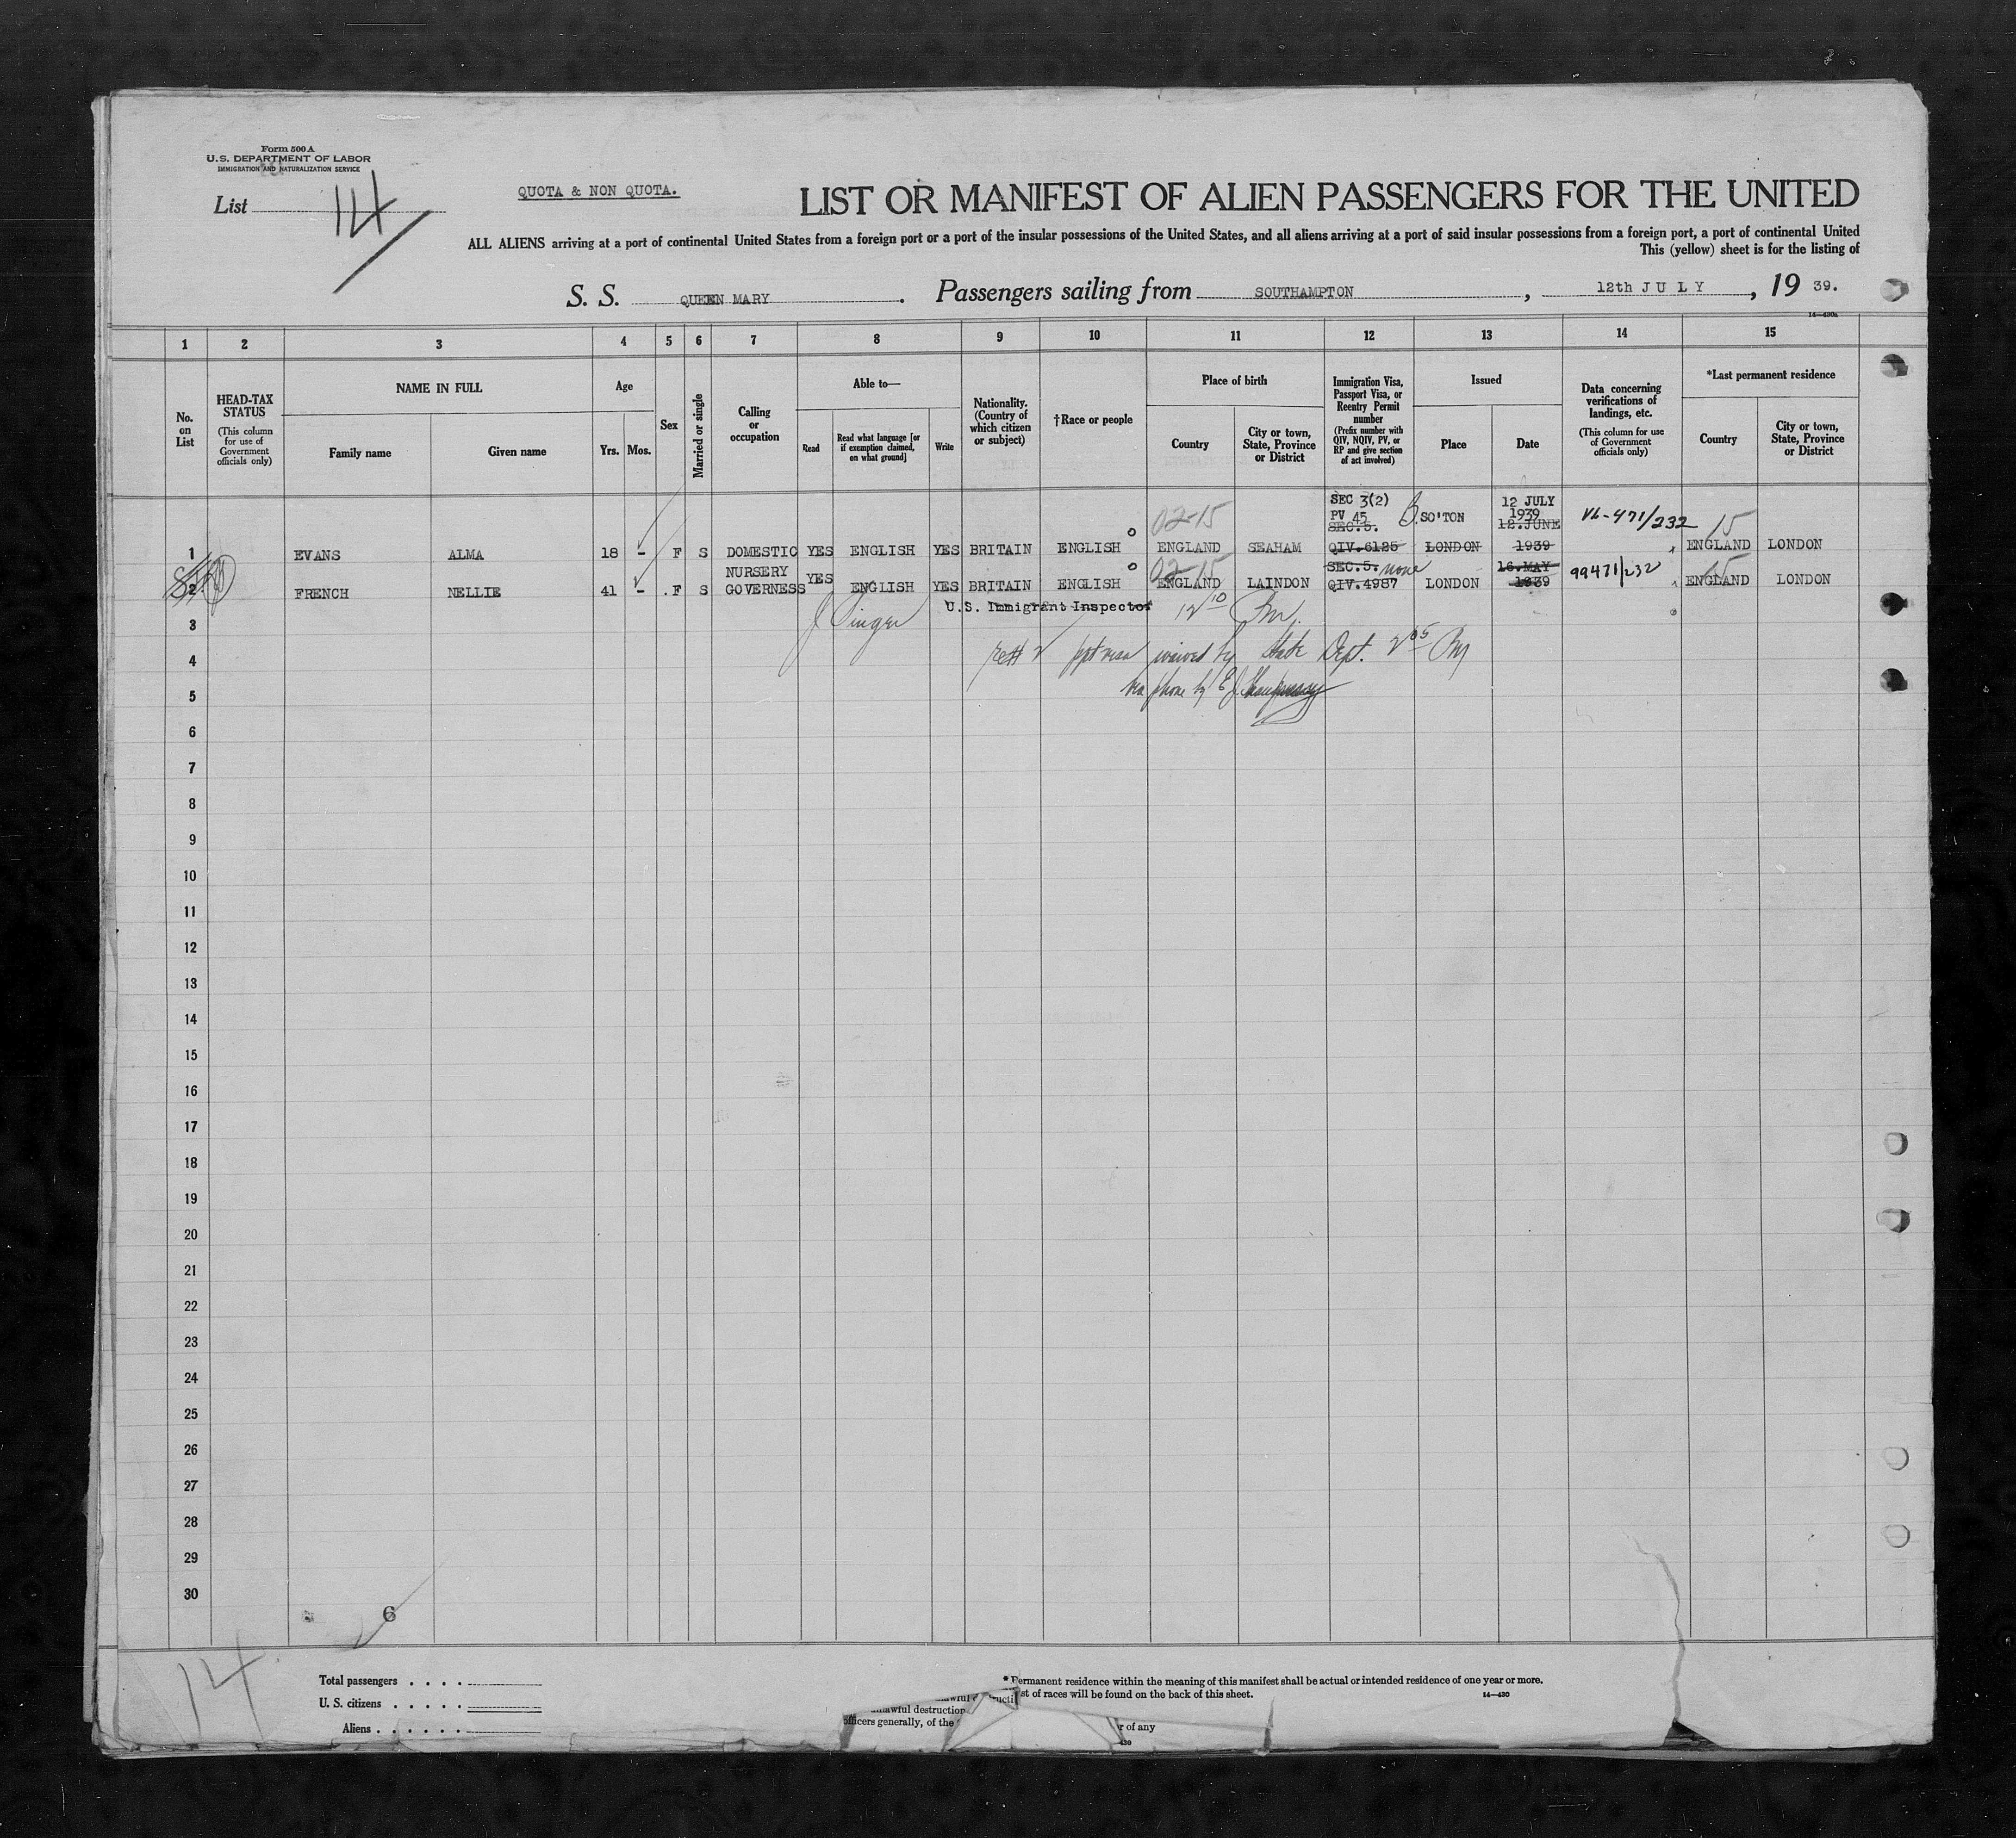 Form 500 A
U.S. DEPARTMENT OF LABOR
IMMIGRATION AND NATURALIZATION SERVICE
List 14
QUOTA & NON QUOTA.
LIST OR MANIFEST OF ALIEN PASSENGERS FOR THE UNITED
ALL ALIENS arriving at a port of continental United States from a foreign port or a port of the insular possessions of the United States, and all aliens arriving at a port of said insular possessions from a foreign port, a port of continental United
This (yellow) sheet is for the listing of
S. S. QUEEN MARY. Passengers sailing from SOUTHAMPTON, 12th JULY, 19 39.
14—430a
1 2 3 4 5 6 7 8 9 10 11 12 13 14 15
No. on List
HEAD-TAX STATUS
(This column for use of Government officials only)
NAME IN FULL
Family name
Given name
Age
Yrs.
Mos.
Sex
Married or single
Calling or occupation
Able to—
Read
Read what language [or if exemption claimed, on what ground]
Write
Nationality. (Country of which citizen or subject)
†Race or people
Place of birth
Country
City or town, State, Province or District
Immigration Visa, Passport Visa, or Reentry Permit number
(Prefix number with QIV, NQIV, PV, or RP and give section of act involved)
Issued
Place
Date
Data concerning verifications of landings, etc.
(This column for use of Government officials only)
*Last permanent residence
Country
City or town, State, Province or District
SEC 3(2) 12 JULY
02-15 PV 45 SO'TON 1939 VL-471/232 15
SEC.5. 12.JUNE
1 EVANS ALMA 18 - F S DOMESTIC YES ENGLISH YES BRITAIN ENGLISH ENGLAND SEAHAM QIV.6125 LONDON 1939 ENGLAND LONDON
NURSERY 02-15 SEC.5. none 16.MAY 99471/232 15
2 FRENCH NELLIE 41 - F S GOVERNESS YES ENGLISH YES BRITAIN ENGLISH ENGLAND LAINDON QIV.4987 LONDON 1939 ENGLAND LONDON
J Singer U.S. Immigrant Inspector 12 10
3
ppt visa waived by State Dept. 2 05
4
via phone by E. J.
5
6
7
8
9
10
11
12
13
14
15
16
17
18
19
20
21
22
23
24
25
26
27
28
29
30
6
14
Total passengers . . . .
U. S. citizens . . . . .
Aliens . . . . . .
*Permanent residence within the meaning of this manifest shall be actual or intended residence of one year or more.
st of races will be found on the back of this sheet.
14—430
awful destruction
officers generally, of the
r of any
430